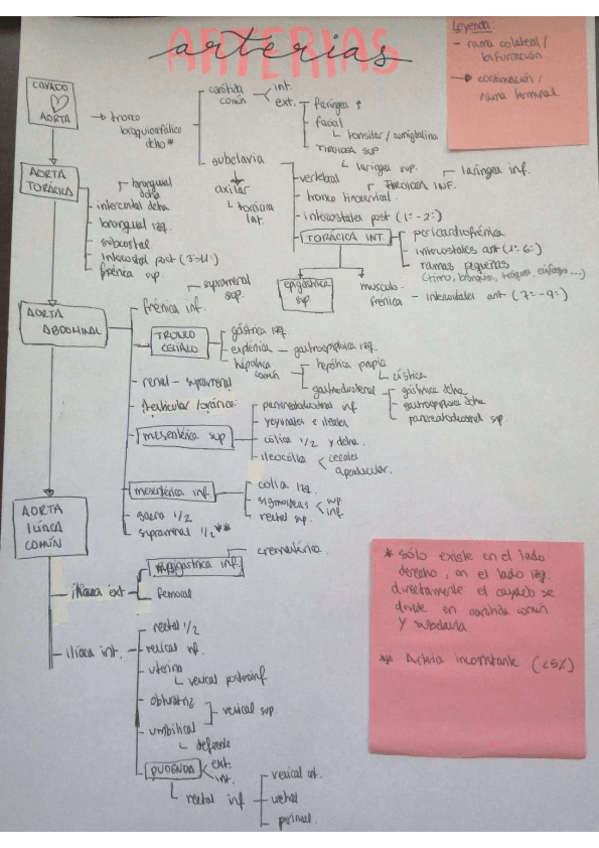 ARTERIAS
arterias
Leyenda:
- rama colateral /
bifurcación
continuación /
rama terminal
CAYADO
AORTA
tronco
braquiocefálico
dcho *
carótida
común
int.
ext.
faríngea
facial
tonsilar /
TIROIDEA SUP
laríngea sup.
subclavia
axilar
torácica
lat.
vertebral
TIROIDEA INF.
laríngea inf.
tronco tirocervical
- intercostales post (1ª-2ª)
TORÁCICA INT.
pericardiofrénica
intercostales ant (1ª-6ª)
ramas pequeñas
(timo, bronquios, tráquea, esófago...)
epigástrica
sup
músculo-
frénica
- intercostales ant (7ª-9ª)
AORTA
TORÁCICA
bronquial
dcha
- intercostal dcha
- bronquial izq.
- subcostal
- intercostal post (3ª-11ª)
- frénica sup.
AORTA
ABDOMINAL
suprarrenal
sup.
frénica inf.
TRONCO
CELÍACO
gástrica izq.
esplénica - gastroepiploica izq.
hepática
común
hepática propia
cística
gastroduodenal
gástrica dcha
gastroepiploica dcha
pancreatoduodenal sup
- renal - suprarrenal
- testicular / ovárica
mesentérica sup
pancreatoduodenal inf
yeyunales e ileales
cólica 1/2 y dcha.
ileocólica
cecales
apendicular.
mesentérica inf.
cólica izq.
sigmoideas
sup
inf
rectal sup.
- sacra 1/2
- suprarrenal 1/2 **
AORTA
ILÍACA
COMÚN
- ilíaca ext
epigástrica inf.
cremastérica.
femoral
- ilíaca int.
rectal 1/2
vesical inf.
uterina
obturatriz
vesical sup.
umbilical
deferente
PUDENDA
ext.
int.
rectal inf
uretral
* sólo existe en el lado
derecho, en el lado izq.
directamente el cayado se
divide en carótida común
y subclavia.
** Arteria inconstante (<5%)